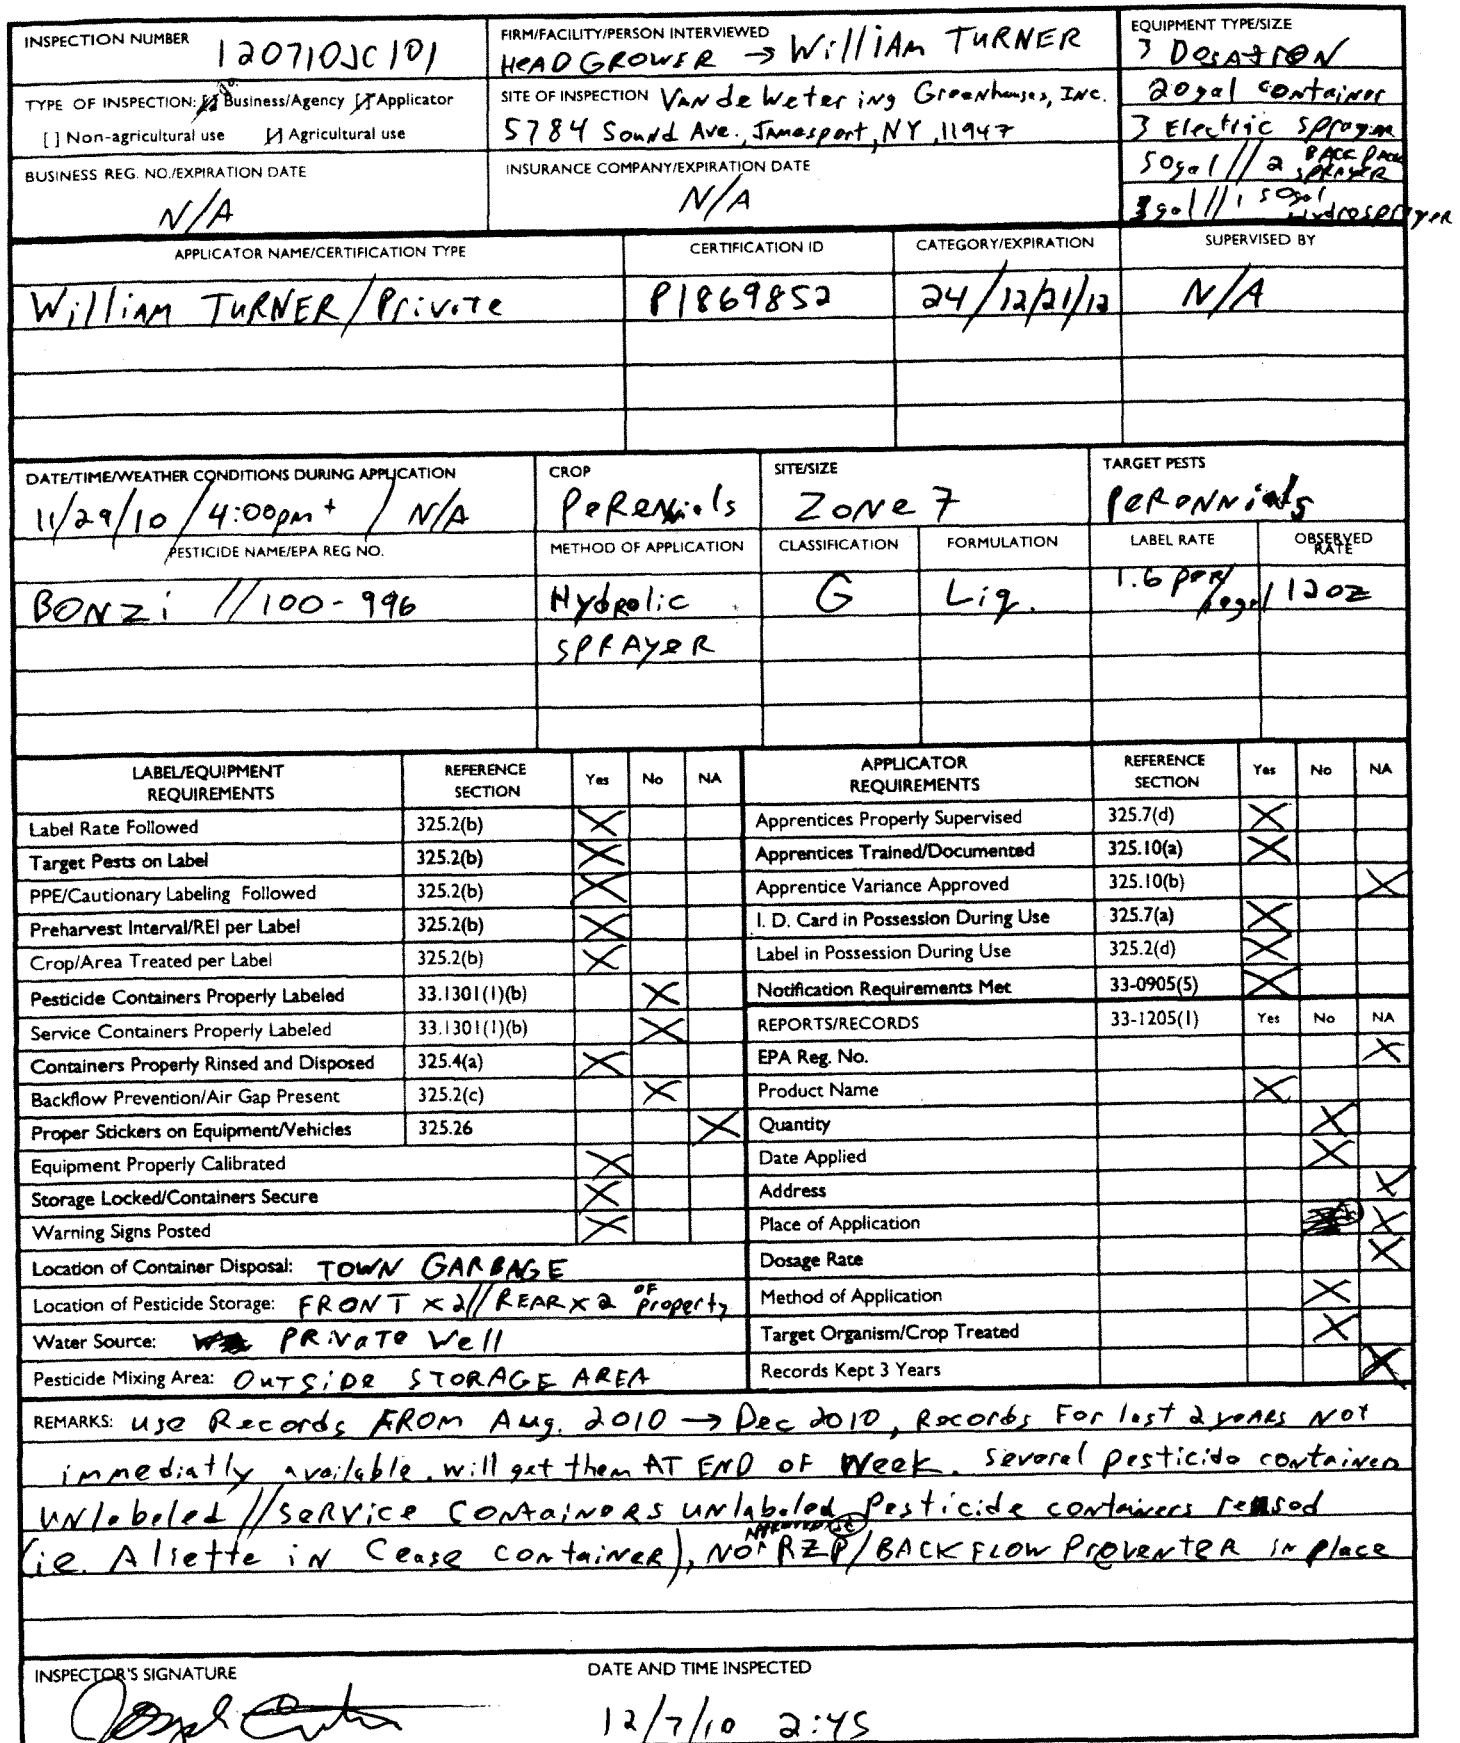 INSPECTION NUMBER 120710JC101
FIRM/FACILITY/PERSON INTERVIEWED
HEAD GROWER → William TURNER
EQUIPMENT TYPE/SIZE
3 DOSATRON
20gal container
3 Electric sprayer
50gal // 2 BACKPACK SPRAYER
3gal // 1 50gal Hydrosprayer
TYPE OF INSPECTION: Business/Agency Applicator
[ ] Non-agricultural use [/] Agricultural use
SITE OF INSPECTION Van de Wetering Greenhouses, Inc.
5784 Sound Ave., Jamesport, NY, 11947
BUSINESS REG. NO./EXPIRATION DATE
N/A
INSURANCE COMPANY/EXPIRATION DATE
N/A
APPLICATOR NAME/CERTIFICATION TYPE CERTIFICATION ID CATEGORY/EXPIRATION SUPERVISED BY
William TURNER/Private P1869852 24/12/21/12 N/A
DATE/TIME/WEATHER CONDITIONS DURING APPLICATION CROP SITE/SIZE TARGET PESTS
11/29/10 / 4:00pm+ / N/A Perennials ZONE 7 Perennials
PESTICIDE NAME/EPA REG NO. METHOD OF APPLICATION CLASSIFICATION FORMULATION LABEL RATE OBSERVED RATE
BONZi // 100-996 Hydrolic SPRAYER G Liq. 1.6 per 12oz
LABEL/EQUIPMENT REQUIREMENTS REFERENCE SECTION Yes No NA
Label Rate Followed 325.2(b) X
Target Pests on Label 325.2(b) X
PPE/Cautionary Labeling Followed 325.2(b) X
Preharvest Interval/REI per Label 325.2(b) X
Crop/Area Treated per Label 325.2(b) X
Pesticide Containers Properly Labeled 33.1301(1)(b) X
Service Containers Properly Labeled 33.1301(1)(b) X
Containers Properly Rinsed and Disposed 325.4(a) X
Backflow Prevention/Air Gap Present 325.2(c) X
Proper Stickers on Equipment/Vehicles 325.26 X
Equipment Properly Calibrated X
Storage Locked/Containers Secure X
Warning Signs Posted X
Location of Container Disposal: TOWN GARBAGE
Location of Pesticide Storage: FRONT x 2 // REAR x 2 OF property
Water Source: PRivaTe Well
Pesticide Mixing Area: OUTSiDe STORAGE AREA
APPLICATOR REQUIREMENTS REFERENCE SECTION Yes No NA
Apprentices Properly Supervised 325.7(d) X
Apprentices Trained/Documented 325.10(a) X
Apprentice Variance Approved 325.10(b) X
I. D. Card in Possession During Use 325.7(a) X
Label in Possession During Use 325.2(d) X
Notification Requirements Met 33-0905(5) X
REPORTS/RECORDS 33-1205(1) Yes No NA
EPA Reg. No. X
Product Name X
Quantity X
Date Applied X
Address X
Place of Application X
Dosage Rate X
Method of Application X
Target Organism/Crop Treated X
Records Kept 3 Years X
REMARKS: use Records FROM Aug. 2010 → Dec 2010, Records For last 2 years Not
immediatly available. will get them AT END OF Week. Several pesticide containers
UNlabeled // service containers unlabeled pesticide containers reused
(ie. Aliette in Cease container), NO APPROVED RZP/BACKFLOW PreventeR in place
INSPECTOR'S SIGNATURE
DATE AND TIME INSPECTED
12/7/10 2:45